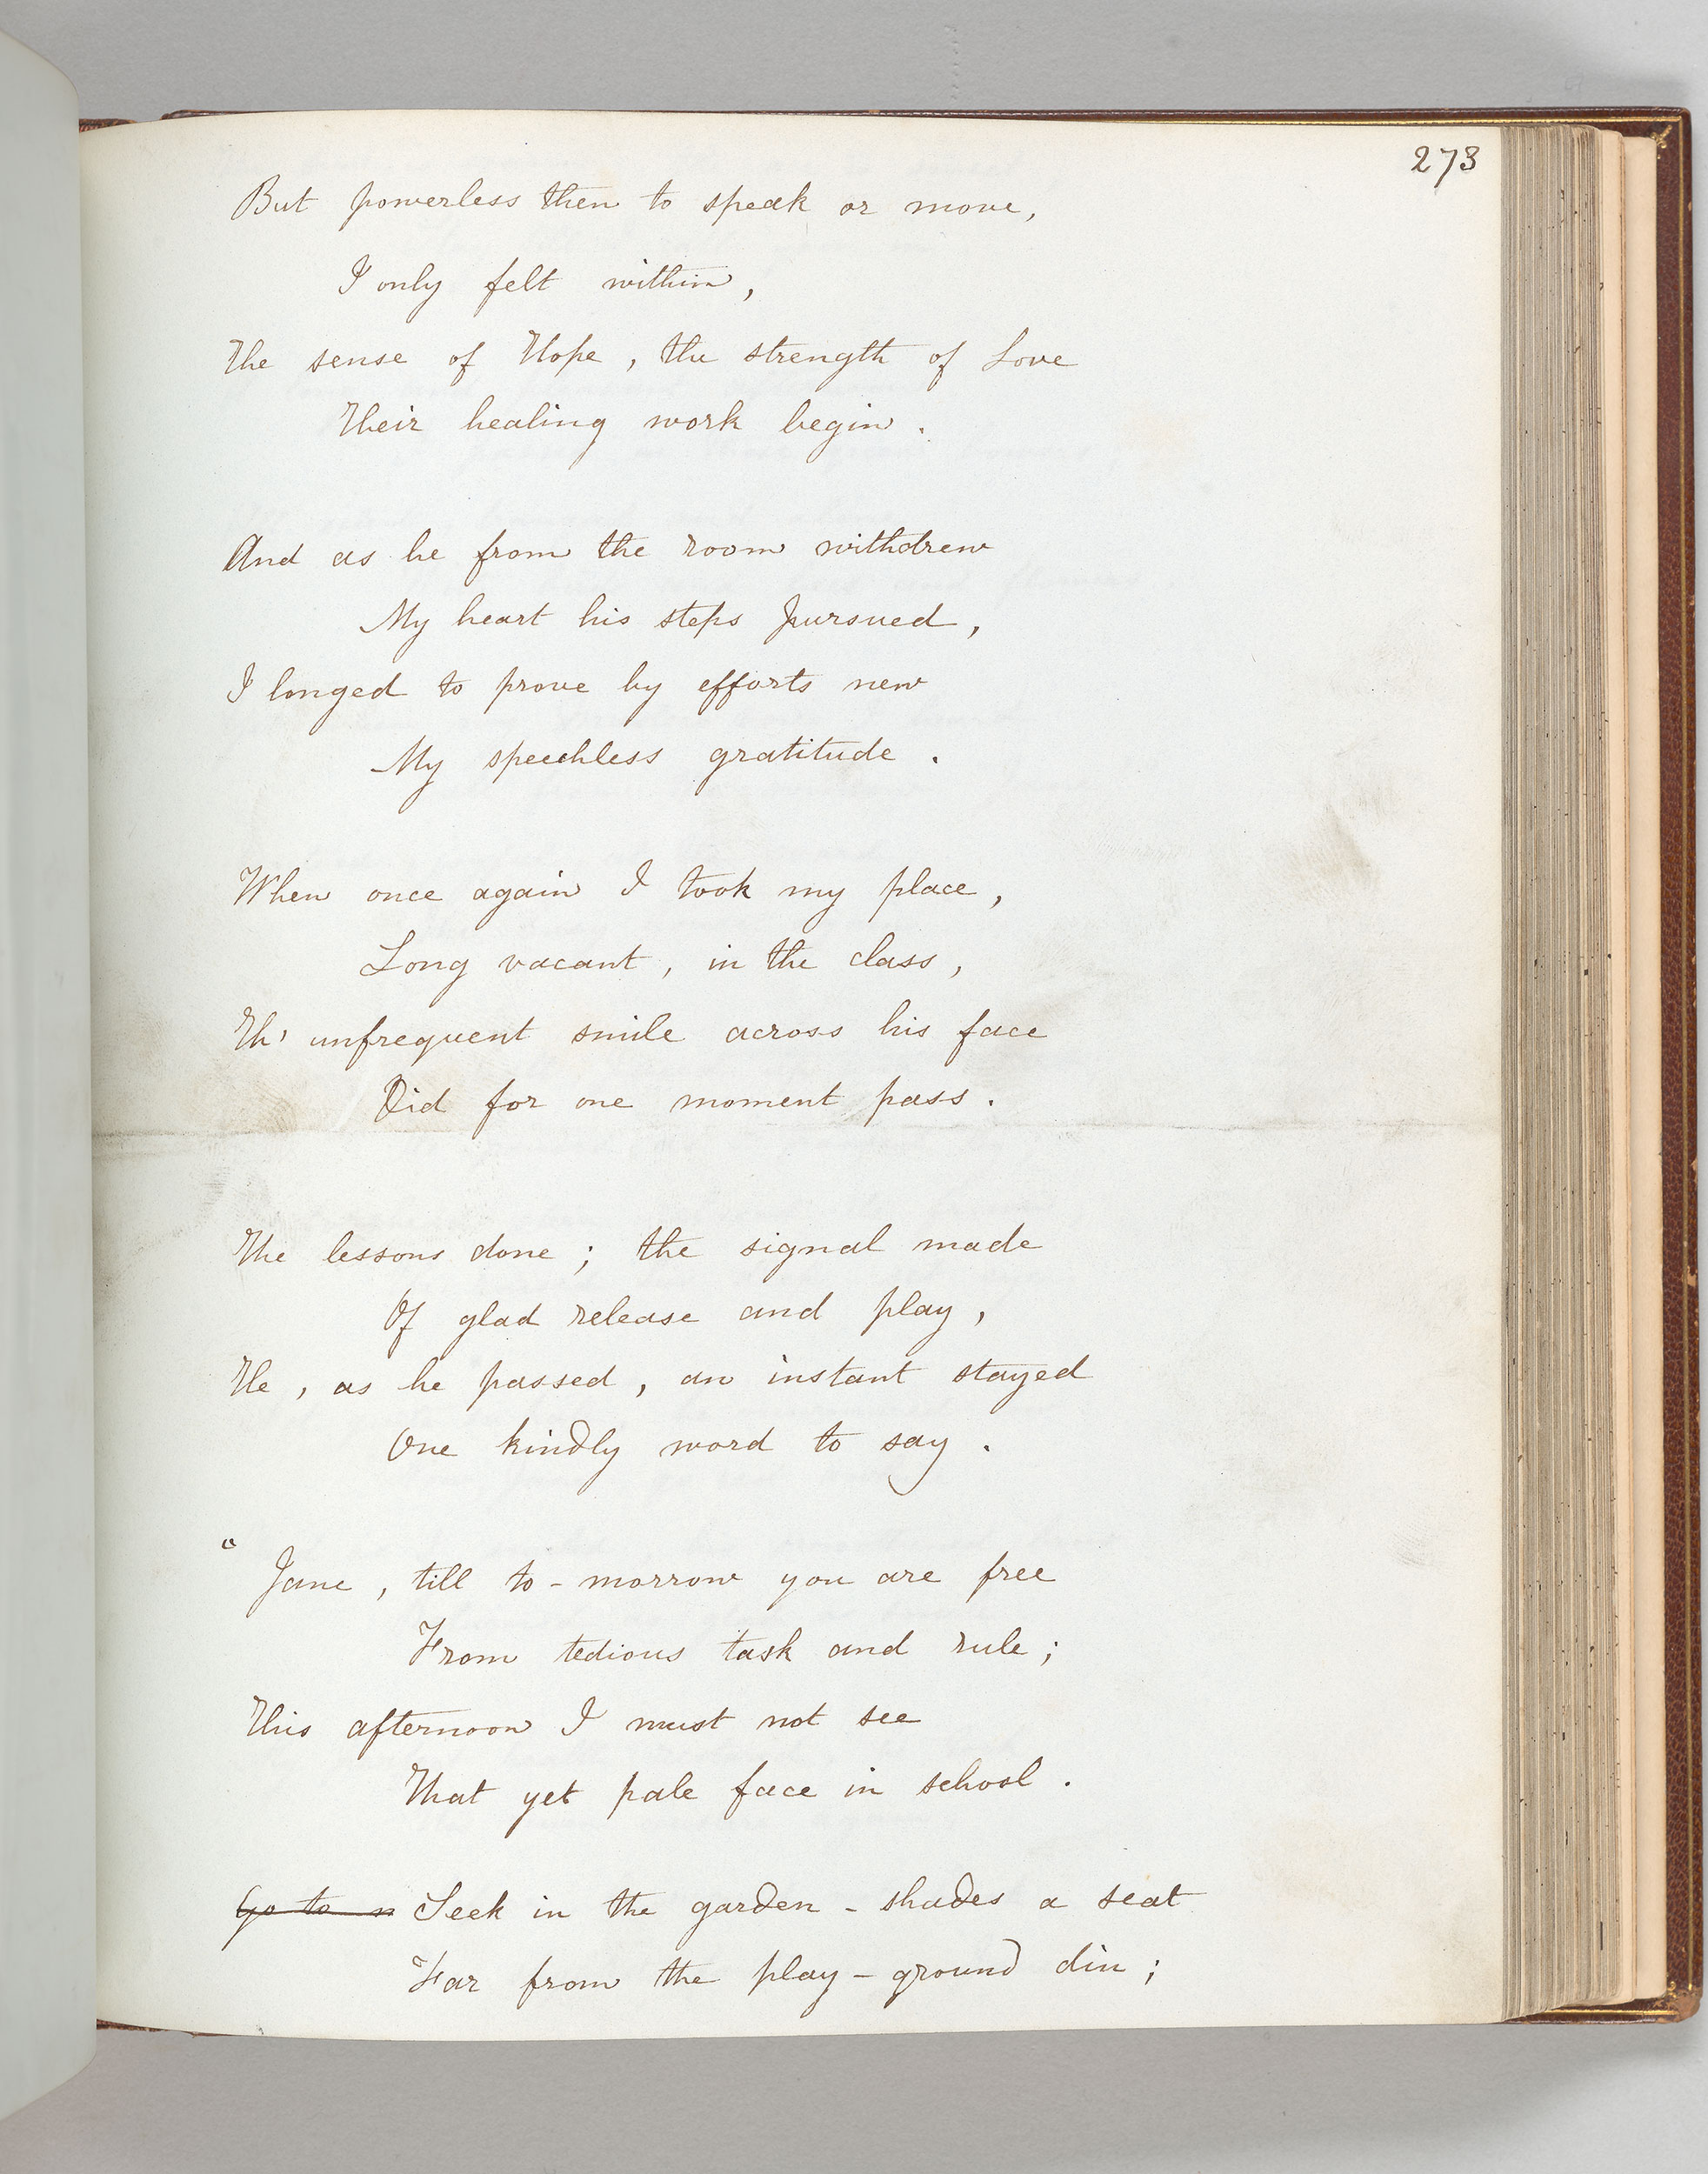 273
But powerless then to speak or move,
I only felt within,
The sense of Hope, the strength of Love
Their healing work begin.
And as he from the room withdrew
My heart his steps pursued,
I longed to prove by efforts new
My speechless gratitude.
When once again I took my place,
Long vacant, in the class,
Th' unfrequent smile across his face
Did for one moment pass.
The lessons done; the signal made
Of glad release and play,
He, as he passed, an instant stayed
One kindly word to say.
"Jane, till to-morrow you are free
From tedious task and rule;
This afternoon I must not see
That yet pale face in school.
Go to n Seek in the garden-shades a seat
Far from the play-ground din;